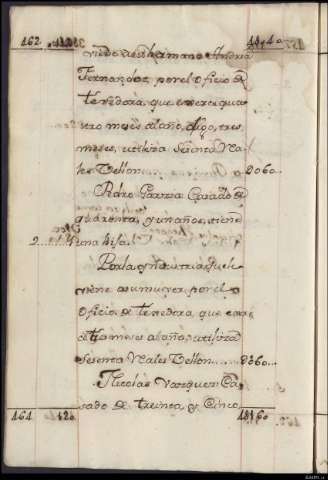 162 18140
su hermano Andrea
Fernandez por el oficio de
texedora, que exerce qua
tro meses al año, digo, tres
meses, utiliza Sesenta Rea
les Vellon 2060
Pedro Garzia Casado de
quarenta, y un años, tiene
2 una hija
Por la yndustria que le
viene a su muger, por el
oficio de texedora, que exer
ce tres meses al año, utiliza
Sesenta Reales Vellon 2060
Nicolas Vazquez Ca
sado de treinta, y Cinco
164 120 18160